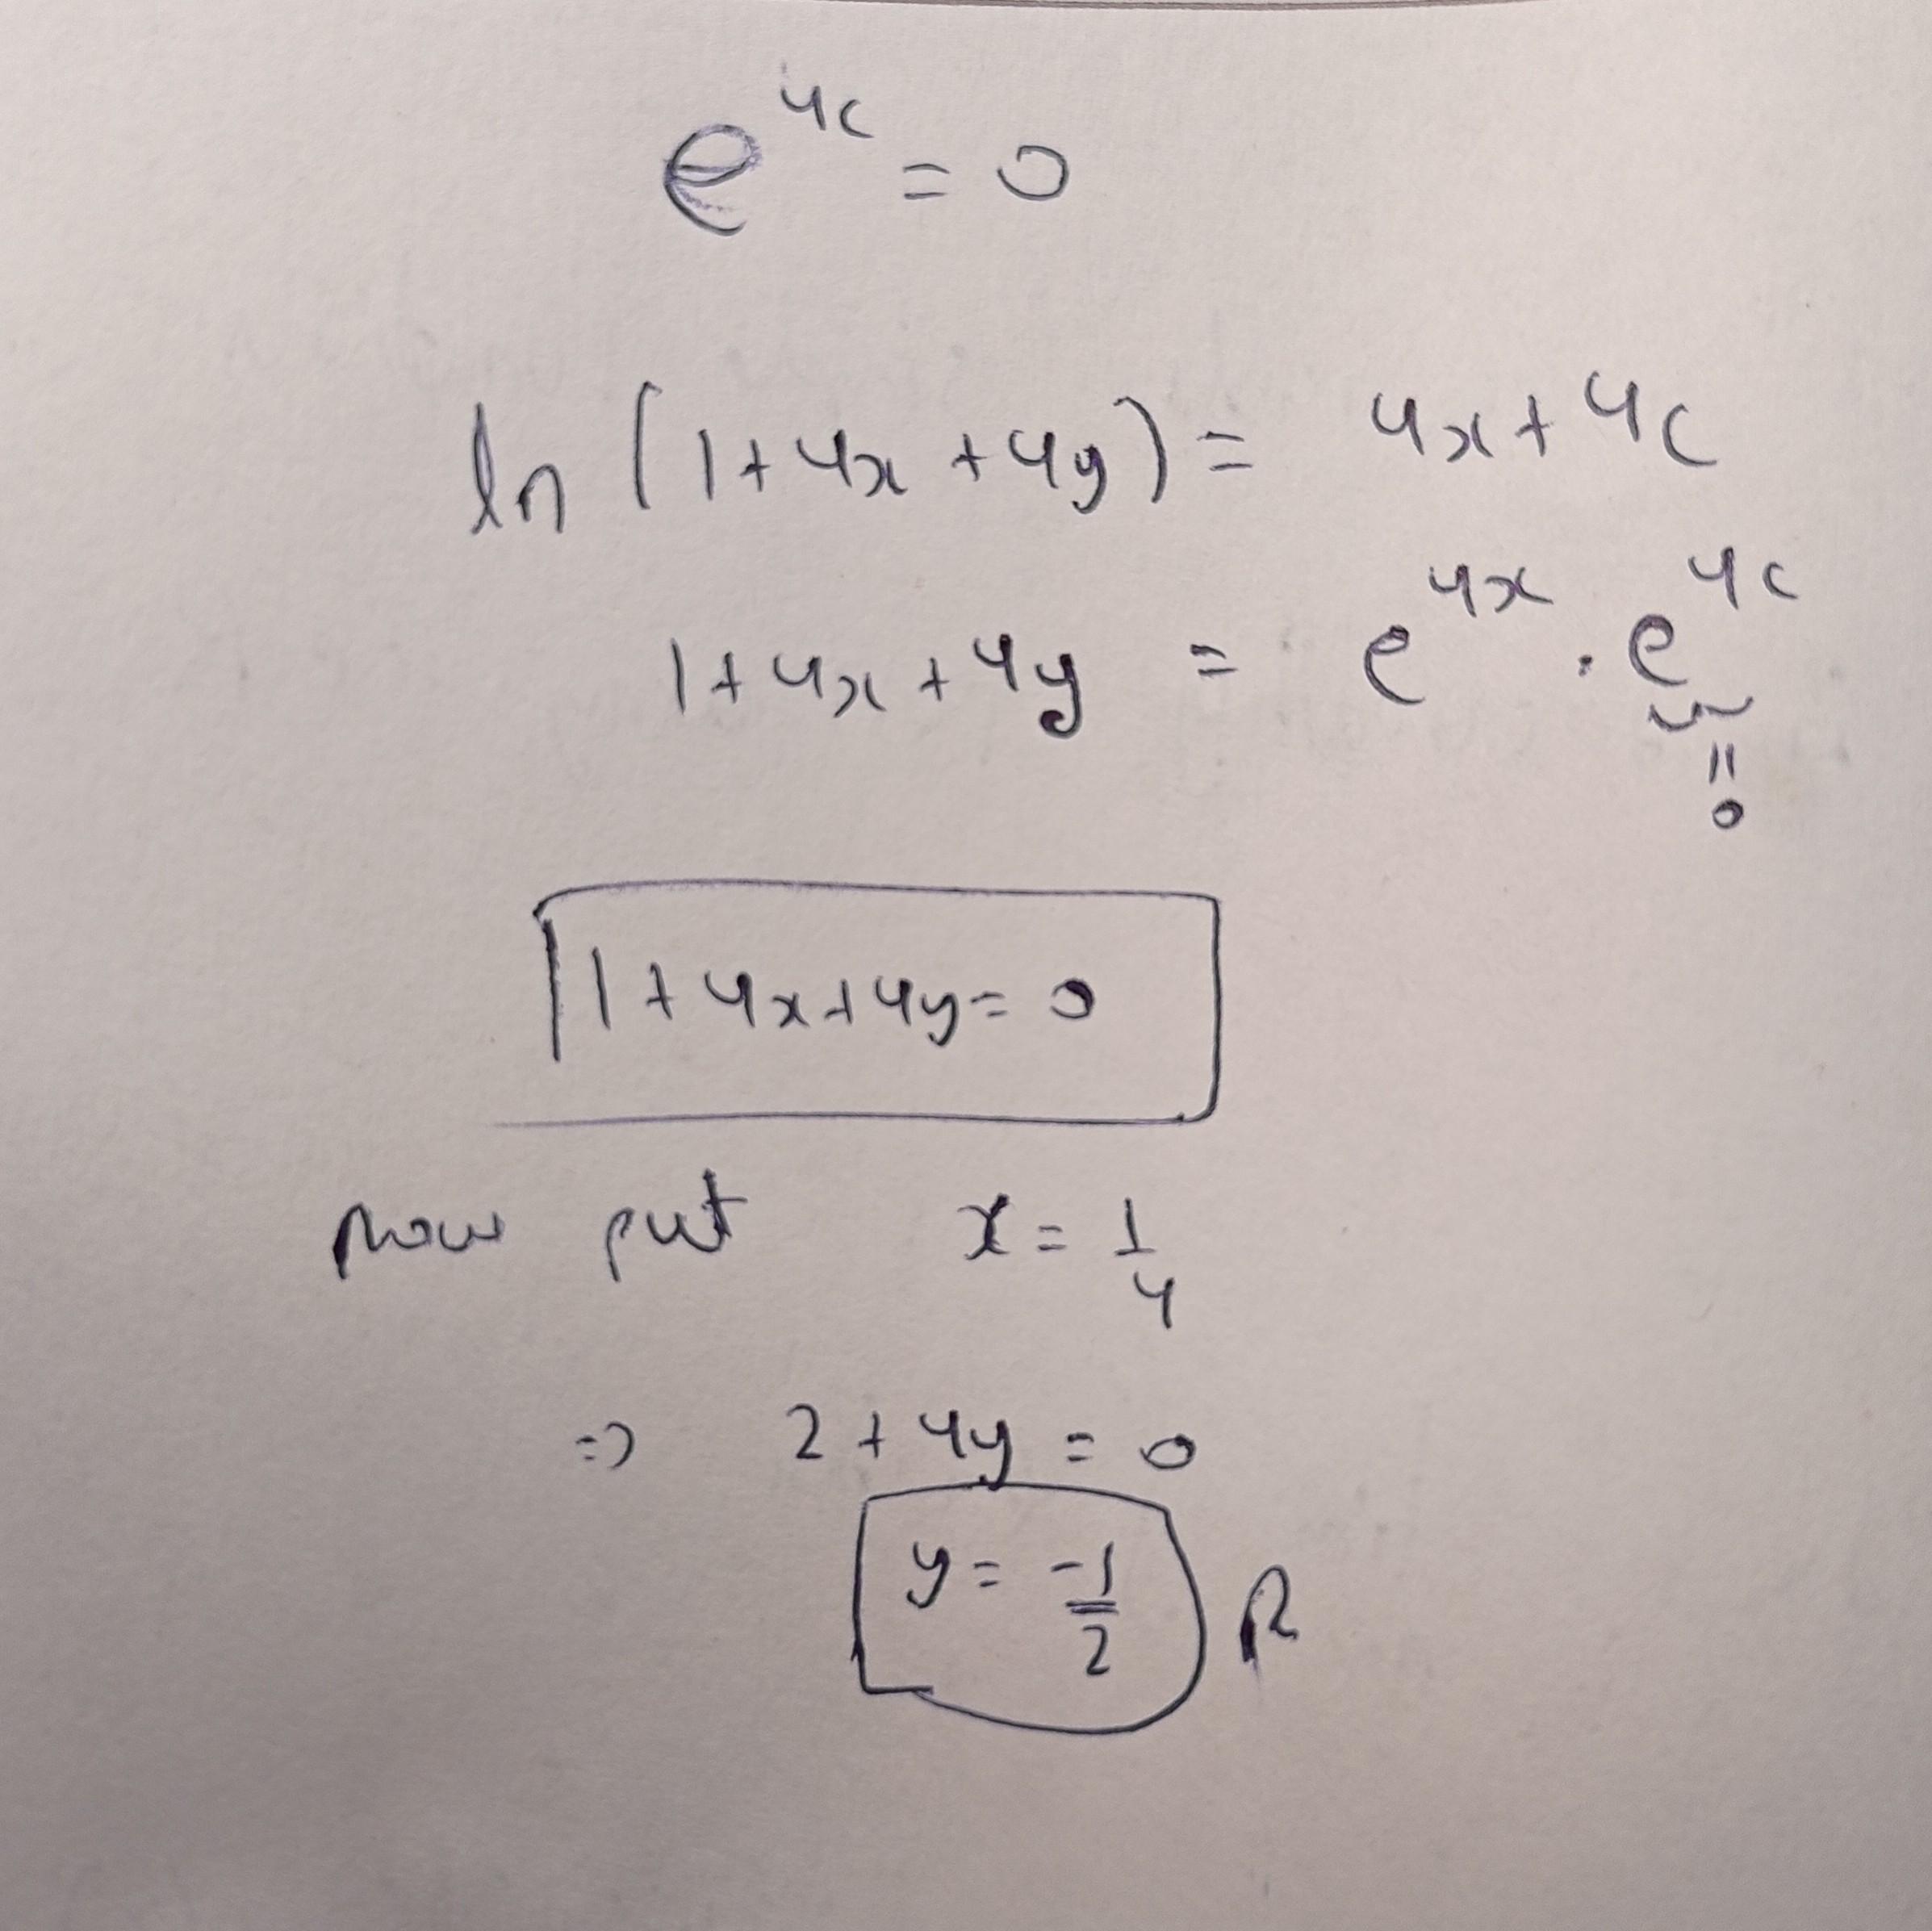 e^{4c} = 0
ln (1+4x+4y) = 4x+4c
1+4x+4y = e^{4x} . e^{4c}
= 0
1+4x+4y = 0
now put x = 1/4
=> 2+4y = 0
y = -1/2